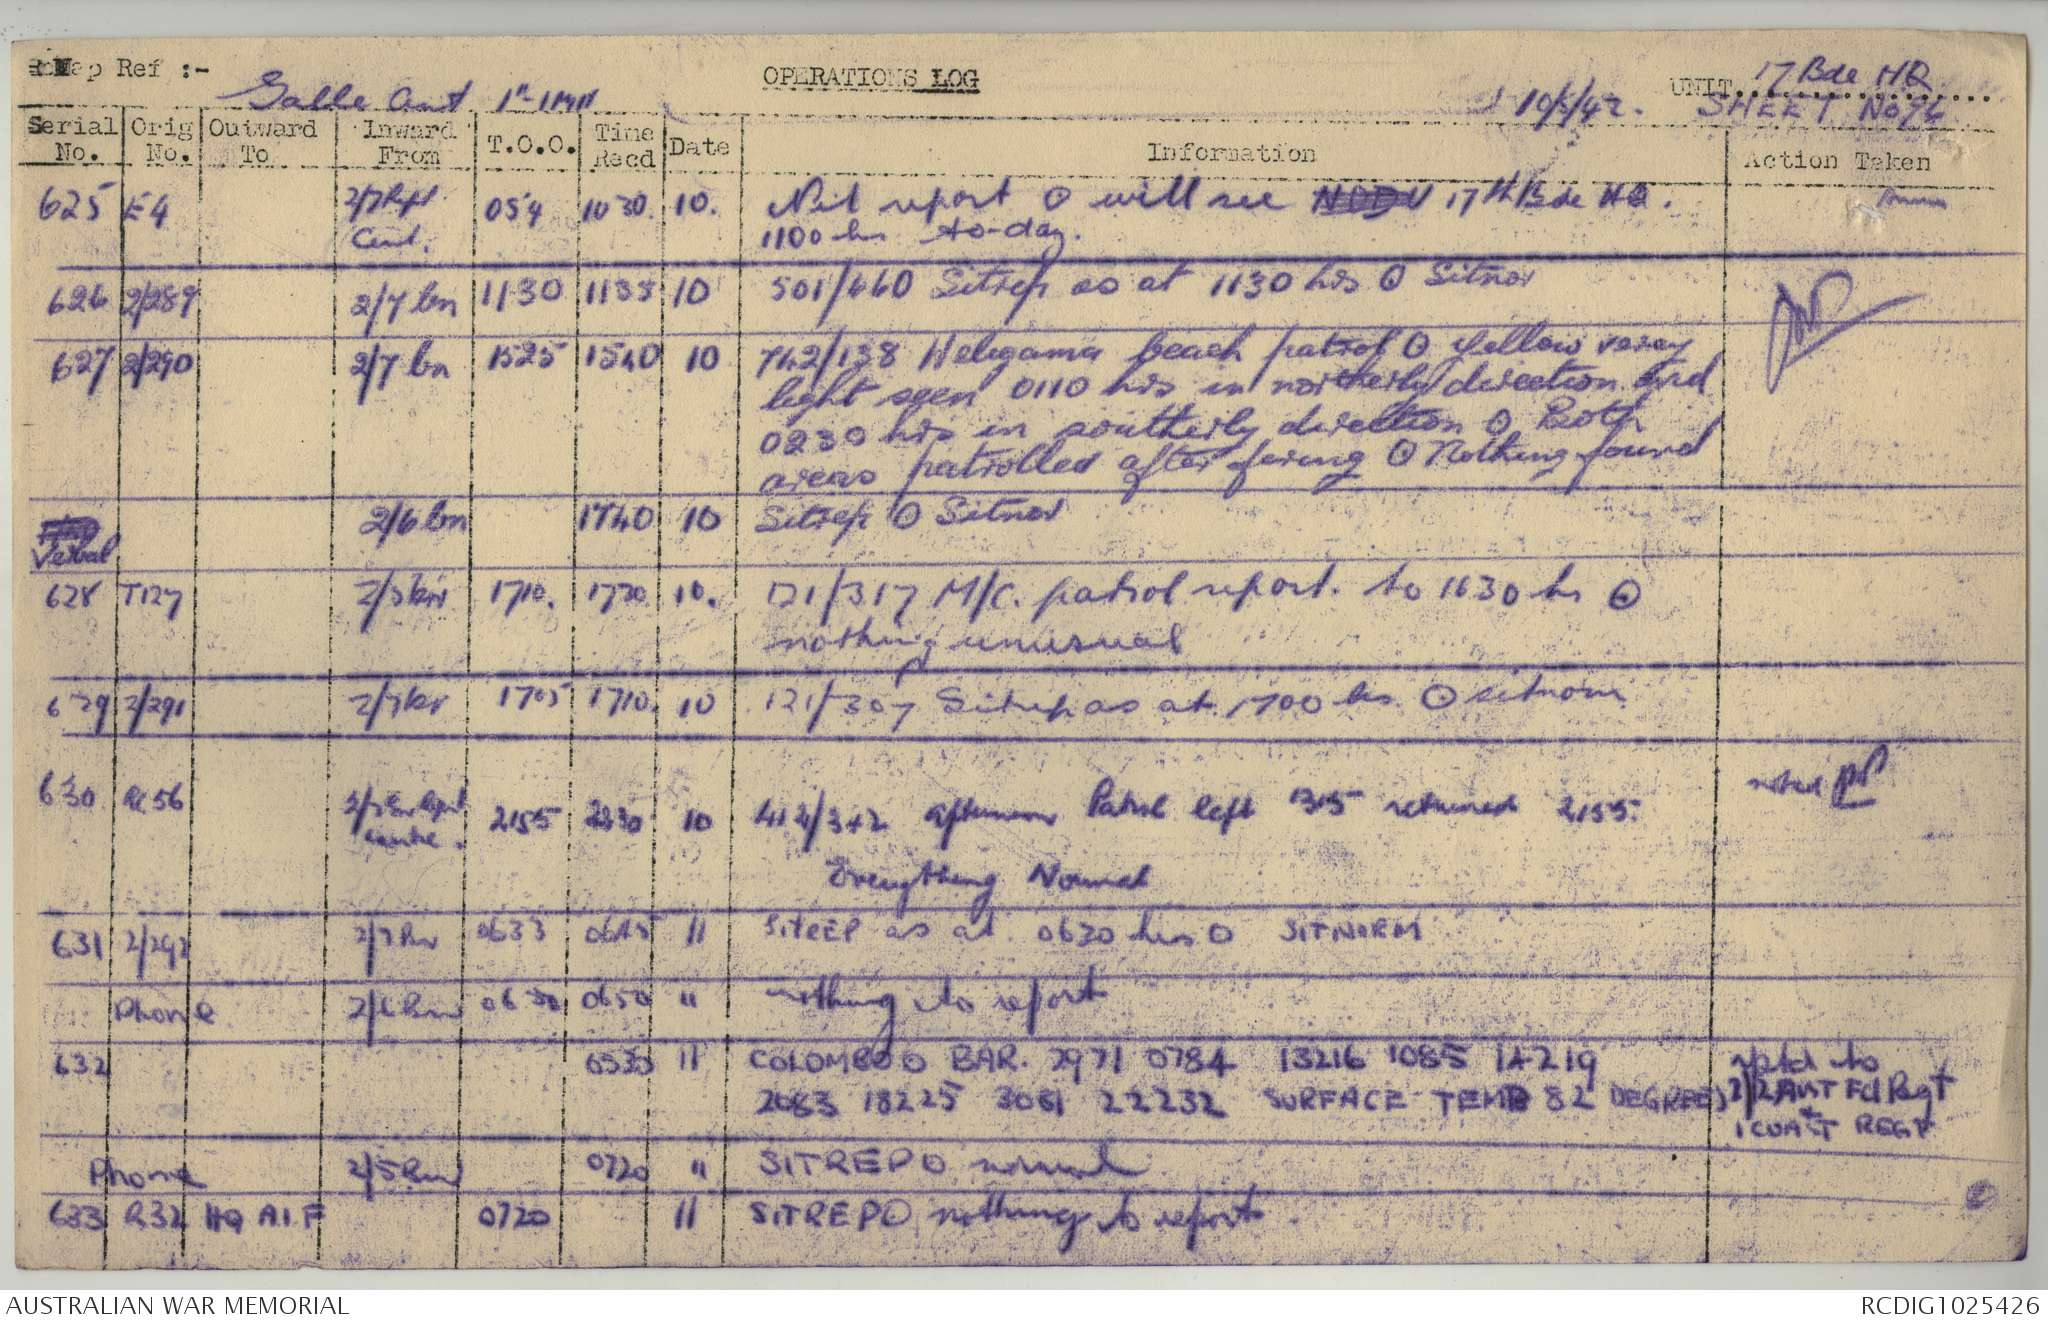 Map Ref :- Galle Cent 1"-1 Mile
OPERATIONS LOG
UNIT 17 Bde HQ
10/5/42. SHEET No 96
Serial No. Orig No. Outward To Inward From T.O.O. Time Recd Date Information Action Taken
625 E4 2/7 Rept Cent. 054 1030. 10. Nil report ⊙ will see 17th Bde HQ.
1100 hrs to-day.
626 2/289 2/7 bn 1130 1135 10 501/460 Sitrep as at 1130 hrs ⊙ Sitnor
627 2/290 2/7 bn 1525 1540 10 742/138 Weligama beach patrol ⊙ Yellow verey
light seen 0110 hrs in northerly direction and
0230 hrs in southerly direction ⊙ Both
areas patrolled after firing ⊙ Nothing found
Verbal 2/6 bn 1740 10 Sitrep ⊙ Sitnor
628 T127 1710. 1730 10. 121/317 M/C. patrol report. to 1630 hrs ⊙
nothing unusual
629 2/291 1705 1710. 10 121/307 Sitrep as at 1700 hrs ⊙ sitnorm
630 RC56 2155 2230 10 412/342 afternoon Patrol left 1315 returned 2155. noted
centre. Everything Normal
631 2/292 2/7 Bn 0633 0645 11 SITREP as at 0630 hrs O SITNORM
Phone 2/6 Bn 0630 0650 " nothing to report
632 0530 11 COLOMBO O BAR. 2971 0784 13216 1085 14219 rptd to
2083 18225 3081 22232 SURFACE TEMP 82 DEGREES 2/2 AUST Fd Regt
1 COAST REGT
Phone 2/5 Bn 0720 " SITREP O normal
633 R32 HQ A.I.F 0720 11 SITREP O nothing to report
AUSTRALIAN WAR MEMORIAL RCDIG1025426